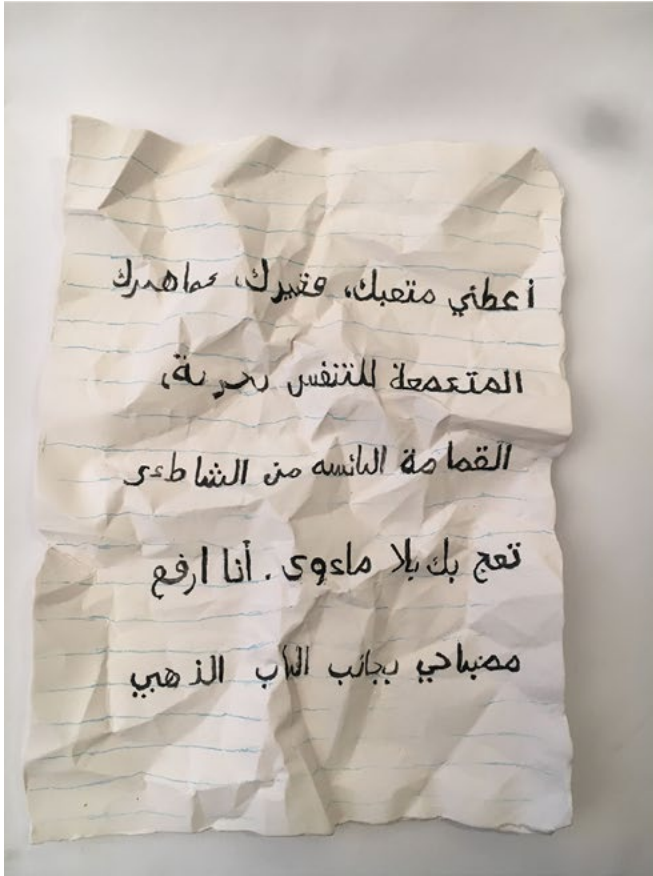 أعطني متعبك، فقيرك، جماهيرك
المتجمعة للتنفس بحرية،
القمامة البائسه من الشاطىء
تعج بك بلا ماءوى. أنا ارفع
مصباحي بجانب الباب الذهبي